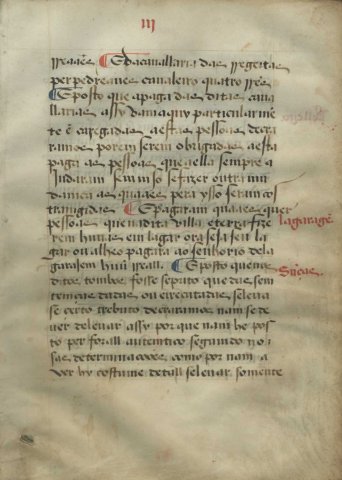 III
per pedreanes caualeiro quatro
Posto que apaga das ditas caua
llarias assy damaquy particularmē
te ē caregadas aestas pessoas decra
ramos porem serem obrigadas aesta
paga as pessoas que aella sempre a
Judaram sem nisso se fazer outra mu
dança as quaaes pera ysso seram cos
trangidas E pagaram quaaes quer
pessoas que na dita villa e terra fize
rem huuas em lagar ora seja seu la
gar ou alheo pagara ao senhorio de la
garajem huū Posto que nos
ditos tombos fosse scprito que das sem
tenças dadas ou eixecutadas se leua
se certo trebuto decraramos nam se de
uer de leuar assy por que nam he pos
to per forall autentico segundo no
sas determinaçoões como por nam a
ver hy custume de tall se leuar somente
lagarageē